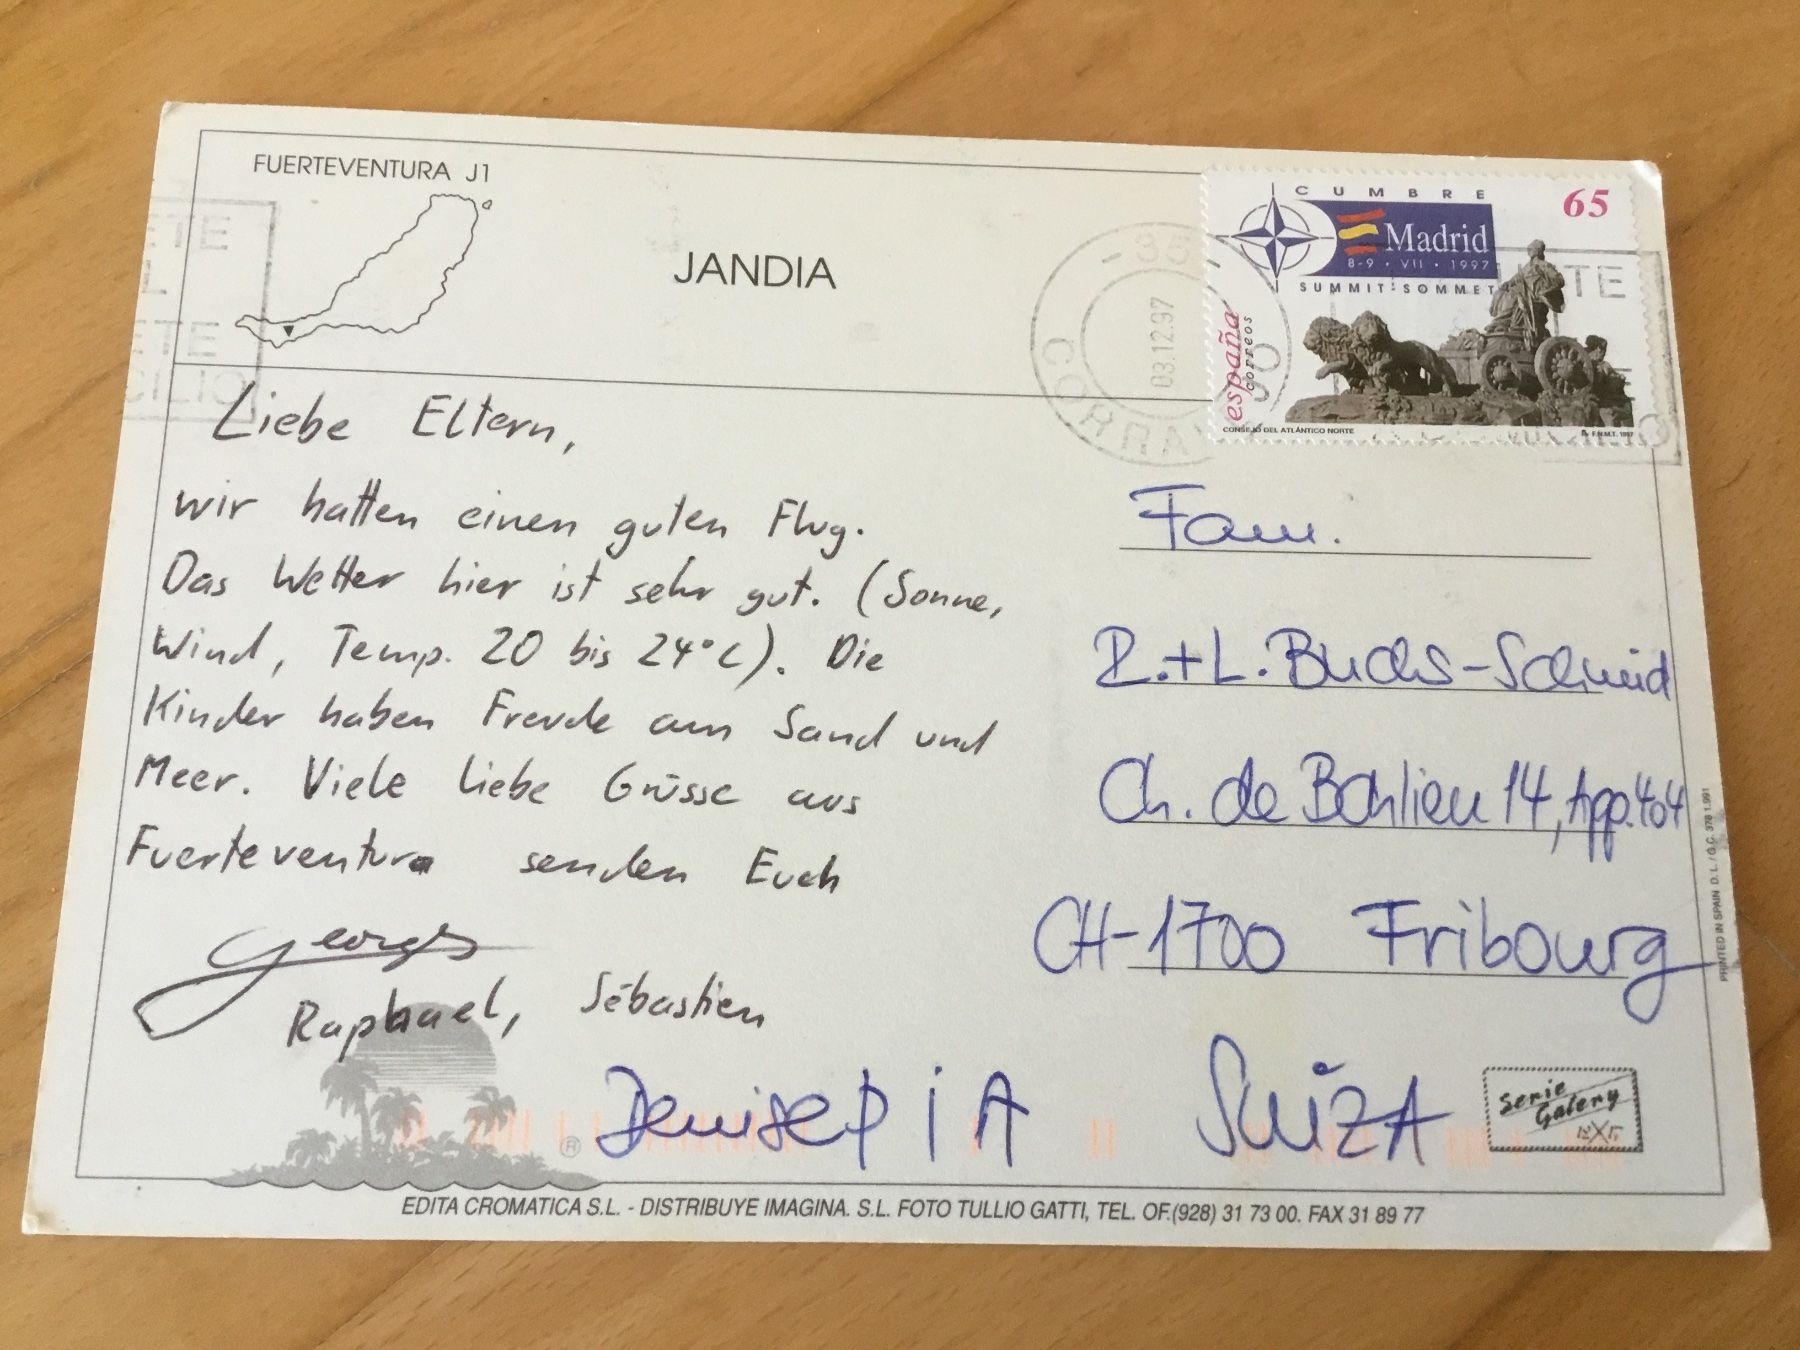 FUERTEVENTURA J1
JANDIA
CUMBRE
65
Madrid
8-9 · VII · 1997
SUMMIT-SOMMET
españa
correos
CONSEJO DEL ATLÁNTICO NORTE
F.N.M.T. 1997
35
03.12.97
Liebe Eltern,
wir hatten einen guten Flug.
Das Wetter hier ist sehr gut. (Sonne,
Wind, Temp. 20 bis 24°C). Die
Kinder haben Freude am Sand und
Meer. Viele liebe Grüsse aus
Fuerteventura senden Euch
Georges
Raphael, Sébastien
Denise PIA
Fam.
R.+L. Buchs-Schmid
Ch. de Bethlien 14, App. 404
CH-1700 Fribourg
SUIZA
Serie
Galery
PRINTED IN SPAIN D. L. / G.C. 378 1.991
EDITA CROMATICA S.L. - DISTRIBUYE IMAGINA. S.L. FOTO TULLIO GATTI, TEL. OF.(928) 31 73 00. FAX 31 89 77